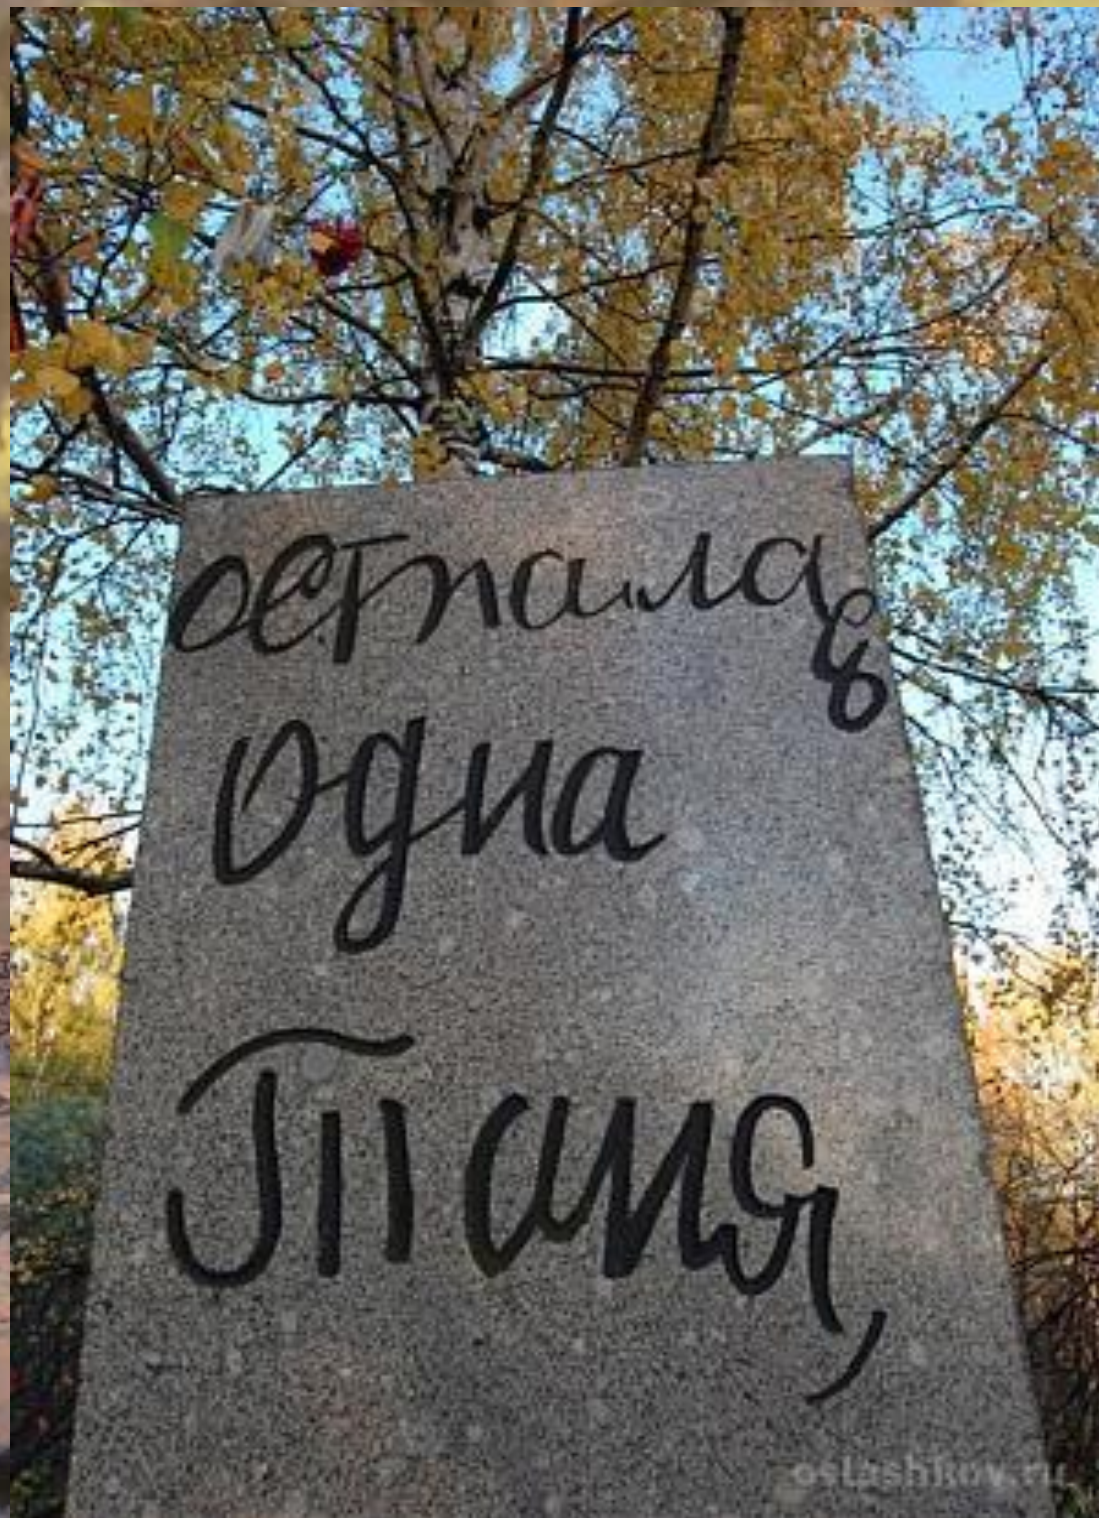 осталась
одна
Таня,
ostashkov.ru